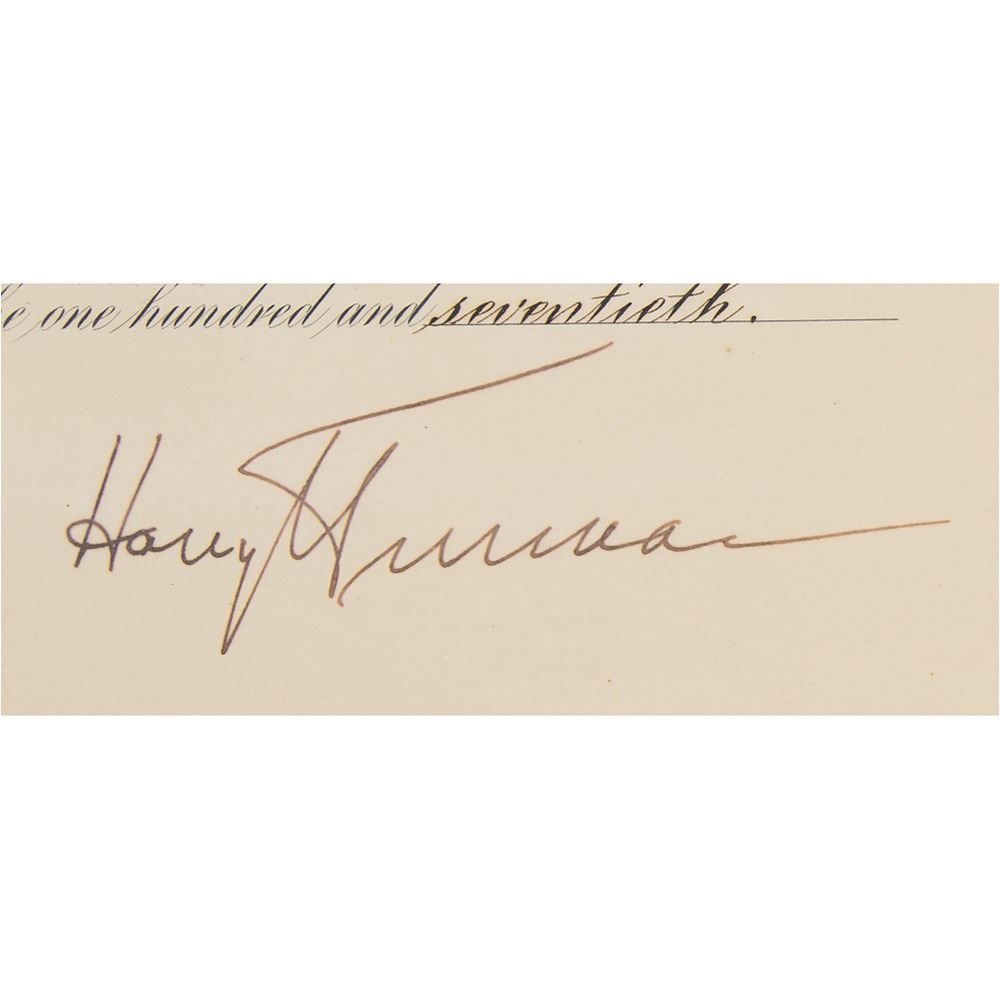 one hundred and seventieth.
Harry Truman